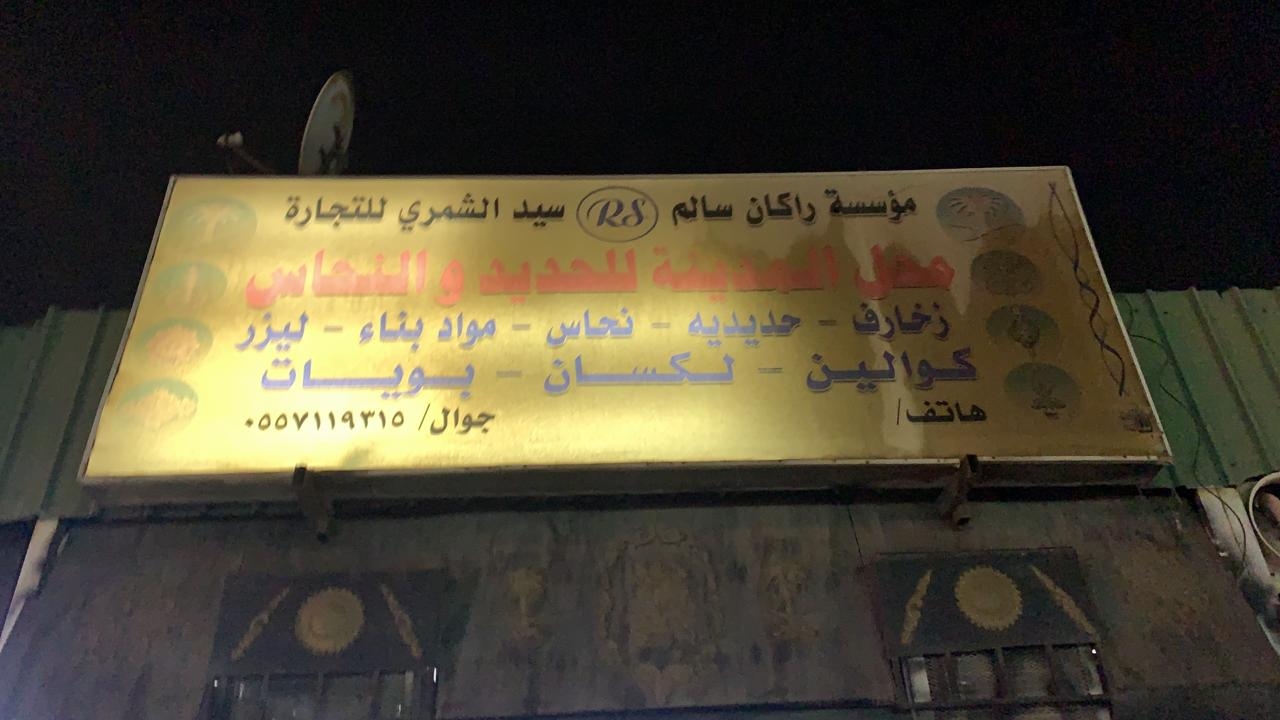 مؤسسة راكان سالم RS سيد الشمري للتجارة
محل المدينة للحديد والنحاس
زخارف - حديديه - نحاس - مواد بناء - ليزر
كوالين - لكسان - بويات
هاتف/ جوال/ ٠٥٥٧١١٩٣١٥